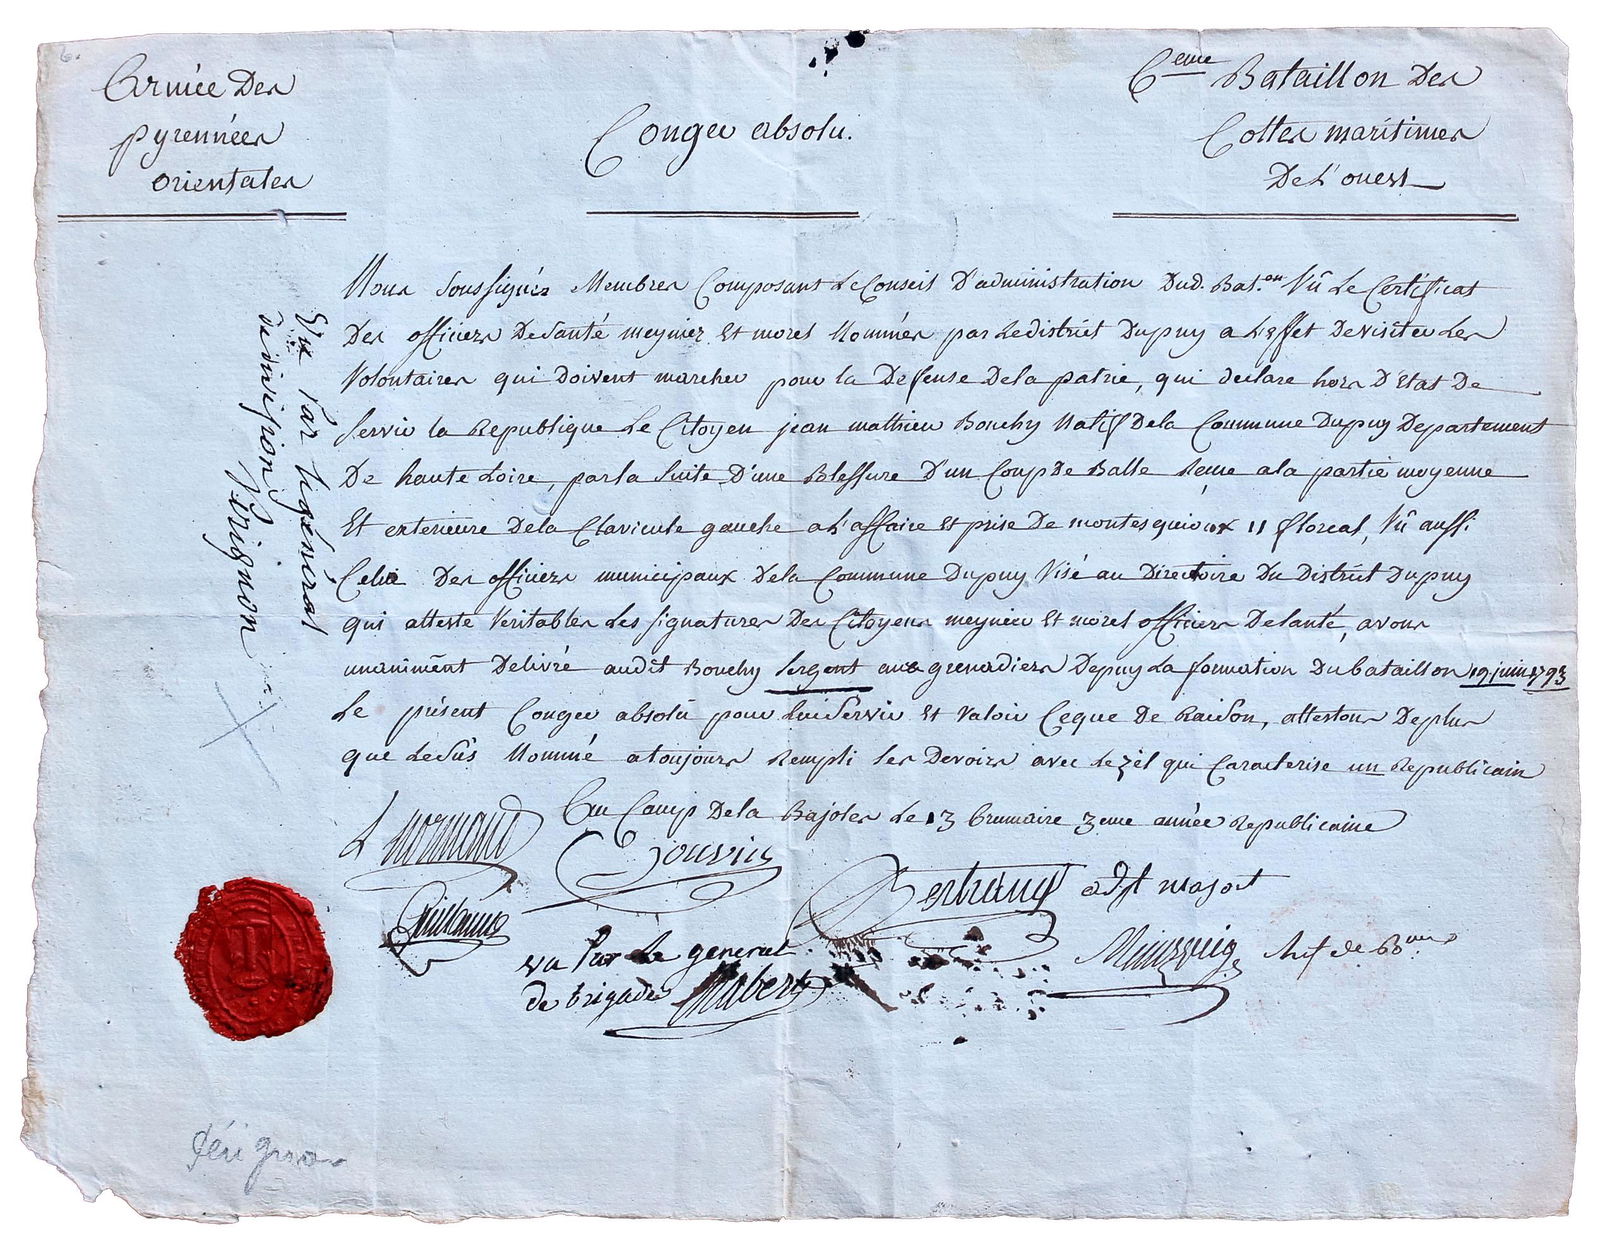 Armée Des
pyrennées
orientales
Congee absolu.
6eme Bataillon Des
Cottes maritimes
De L'ouest
Nous soussignés Membres Composant Le Conseil D'administration Dud. Bat.on Vû Le Certificat
Des officiers De Santé meynier Et morel Nommés par Le district Dupuy a L'effet De visiter Les
Volontaires qui Doivent marcher pour la Defense De la patrie, qui declare hors D'Etat De
Servir la Republique Le Citoyen jean mathieu Bouchy Natif De la Commune Dupuy Departement
De haute Loire, par la Suite D'une Blessure D'un Coup De Balle Recue a la partie moyenne
Et exterieure De la Clavicule gauche a L'affaire Et prise De montesquioux 11 floreal, Vû aussi
Celui Des officiers municipaux De la Commune Dupuy Visé au Directoire Du District Dupuy
qui atteste Veritables Les signatures Des Citoyens meynier Et morel officiers De Santé, avons
unanimént Delivré audit Bouchy Sergent aux grenadiers Depuy La formation Du bataillon 19 juin 1793
Le présent Congee absolu pour Lui Servir Et Valoir Ceque De Raison, attestons De plus
que Le Sus Nommé a toujours Rempli Ses Devoirs avec Le zèl qui Caracterise un Republicain
Au Camp De la Bajoles Le 13 Brumaire 3eme année Republicaine
L Normand
Jouvin
Bertrand adjt major
Guillaume
vu Par Le general
de brigade Mabert
chef de Bon
Vu Par Le général
de division
Pérignon
Pérignon